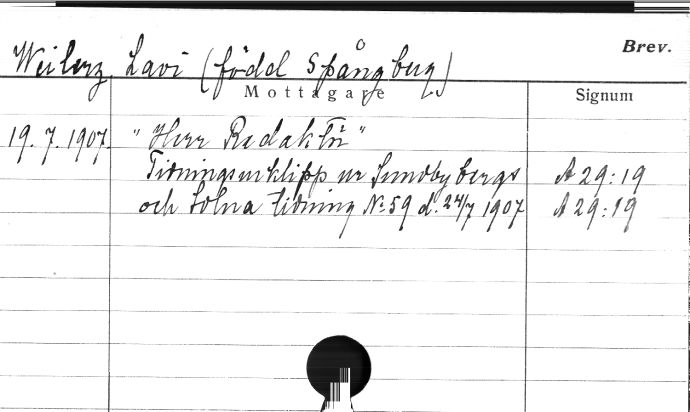 Brev.
Weilerz, Lavi (född Spångberg)
Mottagare Signum
19.7.1907. "Herr Redaktör"
Tidningsurklipp ur Sundbybergs A 29:19
och Solna tidning No 59 d. 24/7 1907 A 29:19